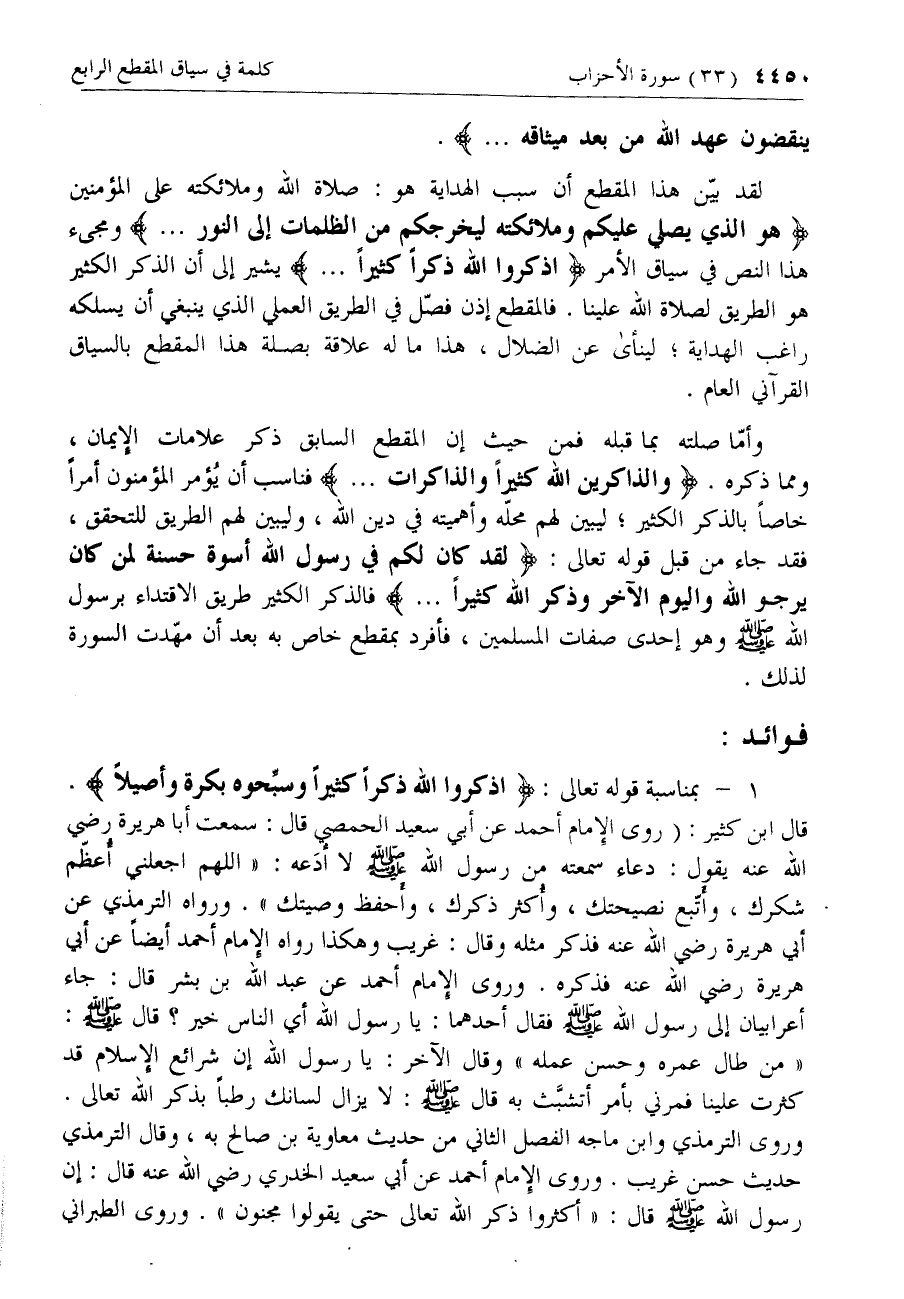 ٤٤٥٠ (٣٣) سورة الأحزاب كلمة في سياق المقطع الرابع
ينقضون عهد الله من بعد ميثاقه ... ﴾ .
لقد بيّن هذا المقطع أن سبب الهداية هو : صلاة الله وملائكته على المؤمنين
﴿ هو الذي يصلي عليكم وملائكته ليخرجكم من الظلمات إلى النور ... ﴾ ومجىء
هذا النص في سياق الأمر ﴿ اذكروا الله ذكراً كثيراً ... ﴾ يشير إلى أن الذكر الكثير
هو الطريق لصلاة الله علينا . فالمقطع إذن فصّل في الطريق العملي الذي ينبغي أن يسلكه
راغب الهداية ؛ لينأىٰ عن الضلال ، هذا ما له علاقة بصلة هذا المقطع بالسياق
القرآني العام .
وأمّا صلته بما قبله فمن حيث إن المقطع السابق ذكر علامات الإيمان ،
ومما ذكره . ﴿ والذاكرين الله كثيراً والذاكرات ... ﴾ فناسب أن يُؤمر المؤمنون أمراً
خاصاً بالذكر الكثير ؛ ليبين لهم محلّه وأهميته في دين الله ، وليبين لهم الطريق للتحقق ،
فقد جاء من قبل قوله تعالى : ﴿ لقد كان لكم في رسول الله أسوة حسنة لمن كان
يرجـو الله واليوم الآخر وذكر الله كثيراً ... ﴾ فالذكر الكثير طريق الاقتداء برسول
الله ﷺ وهو إحدى صفات المسلمين ، فأفرد بمقطع خاص به بعد أن مهّدت السورة
لذلك .
فـوائـد :
١ - بمناسبة قوله تعالى : ﴿ اذكروا الله ذكراً كثيراً وسبِّحوه بكرة وأصيلاً ﴾ .
قال ابن كثير : ( روى الإمام أحمد عن أبي سعيد الحمصي قال : سمعت أبا هريرة رضي
الله عنه يقول : دعاء سمعته من رسول الله ﷺ لا أدَعه : « اللهم اجعلني أُعظّم
شكرك ، وأَتّبع نصيحتك ، وأُكثر ذكرك ، وأَحفظ وصيتك » . ورواه الترمذي عن
أبي هريرة رضي الله عنه فذكر مثله وقال : غريب وهكذا رواه الإمام أحمد أيضاً عن أبي
هريرة رضي الله عنه فذكره . وروى الإمام أحمد عن عبد الله بن بشر قال : جاء
أعرابيان إلى رسول الله ﷺ فقال أحدهما : يا رسول الله أي الناس خير ؟ قال ﷺ :
« من طال عمره وحسن عمله » وقال الآخر : يا رسول الله إن شرائع الإسلام قد
كثرت علينا فمرني بأمر أتشبَّث به قال ﷺ : لا يزال لسانك رطباً بذكر الله تعالى .
وروى الترمذي وابن ماجه الفصل الثاني من حديث معاوية بن صالح به ، وقال الترمذي
حديث حسن غريب . وروى الإمام أحمد عن أبي سعيد الخدري رضي الله عنه قال : إن
رسول الله ﷺ قال : « أكثروا ذكر الله تعالى حتى يقولوا مجنون » . وروى الطبراني